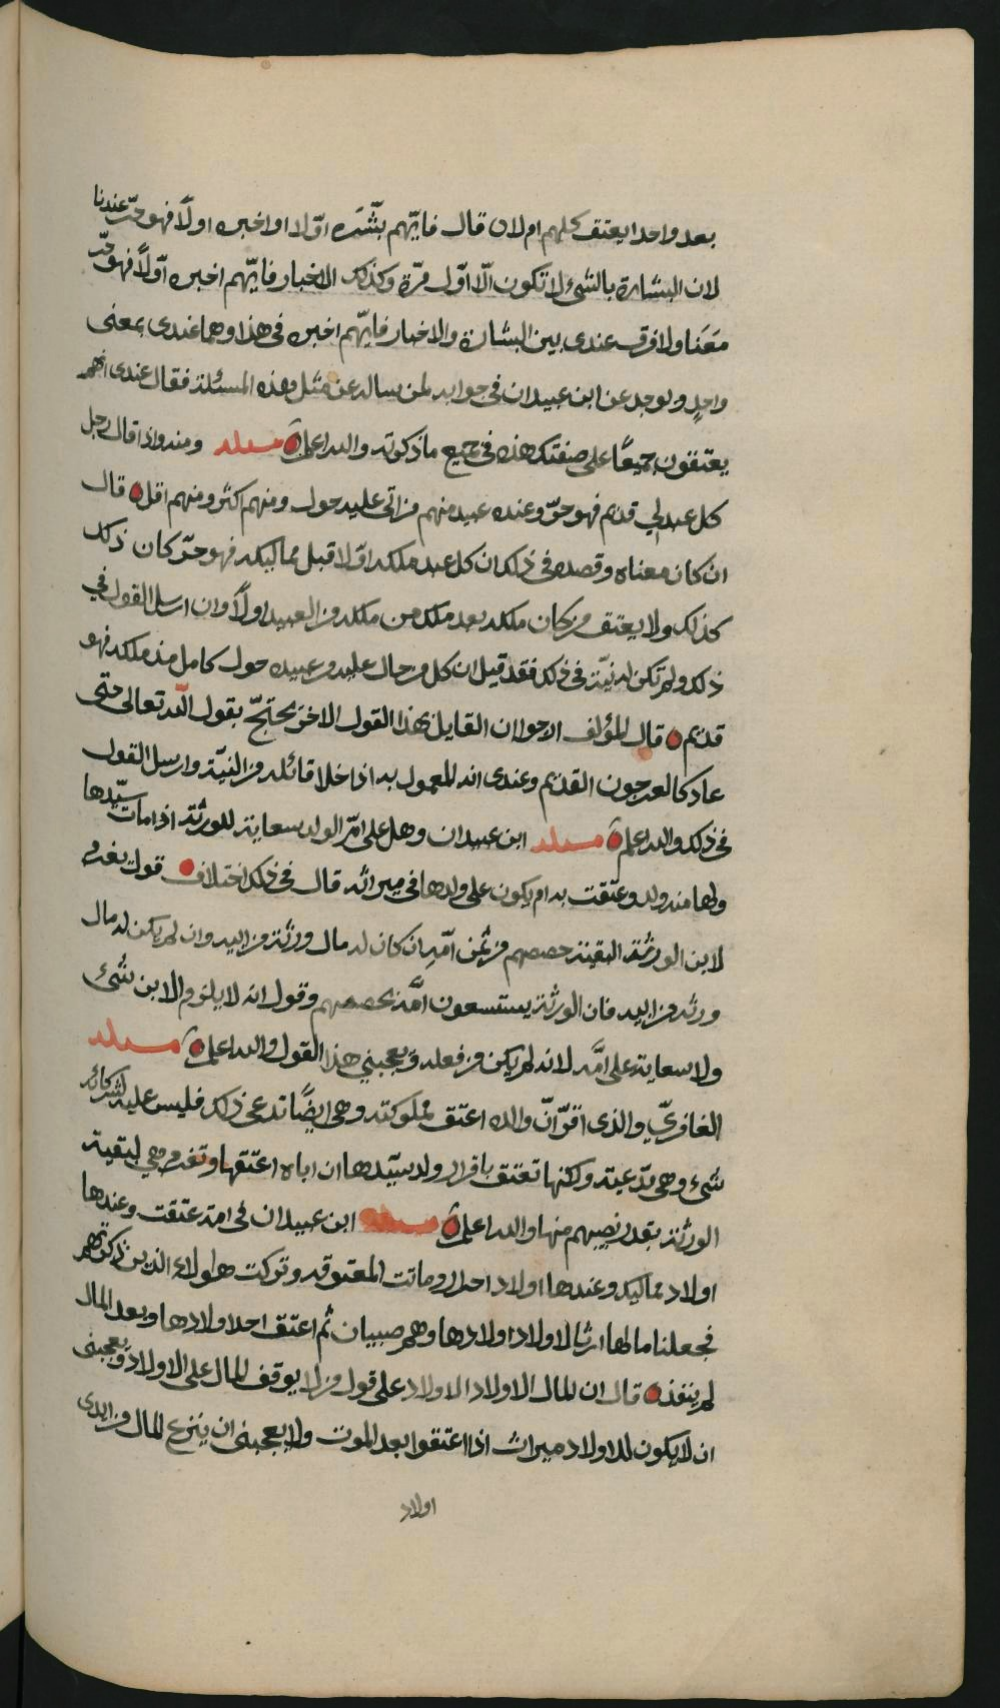 بعد واحد ايعتق كلهم ام لا ن قال فايّهم بشّره اوّلا او اخبره اولًا فهو حرّ عندنا
لان البشارة بالشيء لا تكون الّا اوّل مرّة وكذلك الاخبار فايّهم اخبره اوّلًا فهو حرّ
معَنا ولا فرق عندى بين البشارة والاخبار فايّهم اخبره فى هذا وهما عندى بمعنى
واحدٍ ويوجد عن ابن عبيدان فى جوابه لمن ساله عن مثل هذه المسئلة فقال عندى انهم
يعتقون جميعًا على صفتك هذه فى جميع ما ذكرته والله اعلم مسئلة ومنه واذا قال رجل
كل عبد لي قديم فهو حرّ وعنده عبيد منهم من اتى عليه حول ومنهم اكثر ومنهم اقل قال
ان كان معناه وقصده فى ذلك ان كل عبد ملكه اوّلا قبل مماليكه فهو حرّ كان ذلك
كذلك ولا يعتق من كان ملكه بعد ملكه من ملكه من العبيد اولًا وان ارسل القول في
ذلك ولم تكن له نيّة فى ذلك فقد قيل ان كل من حال عليه من عبيده حول كامل منذ ملكه فهو
قديم قال المؤلف الارجوا ان القايل بهذا القول الاخر يحتجّ بقول الله تعالى حتى
عاد كالعرجون القديم وعندى انه المعمول به اذا خلا قائله من النيّة وارسل القول
فى ذلك والله اعلم مسئلة ابن عبيدان وهل على امّ الولد سعاية للورثة اذا مات سيّدها
ولها منه ولد وعتقت به ام يكون على ولدها فى ميراثه قال فى ذلك اختلاف قول يغرم
لابن الورثة البقية حصصهم من ثمن امّه ان كان له مال ورثه من ابيه وان لم يكن له مال
ورثه من ابيه فان الورثة يستسعون امَّه بحصصهم وقول انه لا يلزم الابن شيء
ولا سعاية على امَّه لانه لم يكن من فعله ويعجبني هذا القول والله اعلم مسئلة
الغافريّ والذى اقرّ انّ والده اعتق مملوكته وهى ايضًا تدعى ذلك فليس عليه لشركائه
شيء وهى مدّعية ولكنها تعتق باقرار ولد سيّدها ان اباه اعتقها وتغرم هي لبقية
الورثة بقدر نصيبهم منها والله اعلم مسئلة ابن عبيدان فى امة عتقت وعندها
اولاد مماليك وعندها اولاد احرار وماتت المعتوقة وتركت هاولاء الذين ذكرتهم
فجعلنا مالها ارثا لاولاد اولادها وهم صبيان ثم اعتق احد اولادها وبعد المال
لم ينفذ قال ان المال لاولاد الاولاد على قول من لا يوقف المال على الاولاد ويعجبنى
ان لا يكون للاولاد ميراث اذا اعتقوا بعد الموت ولا يعجبنى ان ينزع المال من ايدى
اولاد